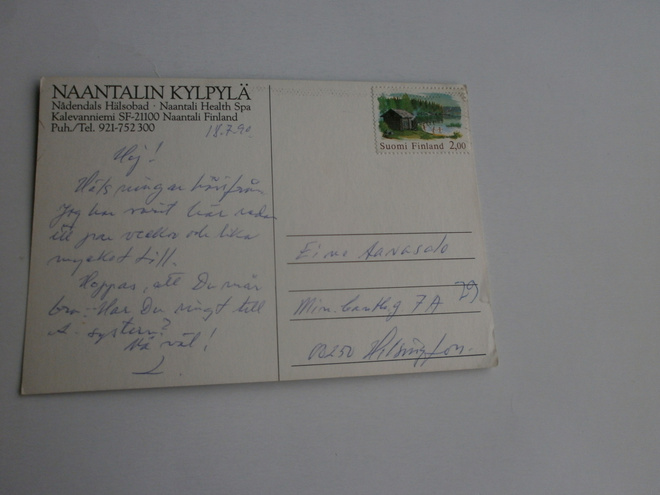 NAANTALIN KYLPYLÄ
Nådendals Hälsobad · Naantali Health Spa
Kalevanniemi SF-21100 Naantali Finland
Puh./Tel. 921-752 300
18.7.90
Hej!
Hälsningar härifrån
Jag har varit här redan
ett par veckor och lika
mycket till.
Hoppas, att Du mår
bra. Har Du ringt till
A-system?
Må väl!
Suomi Finland 2,00
Aarasalo
7A 29
00250 Helsingfors